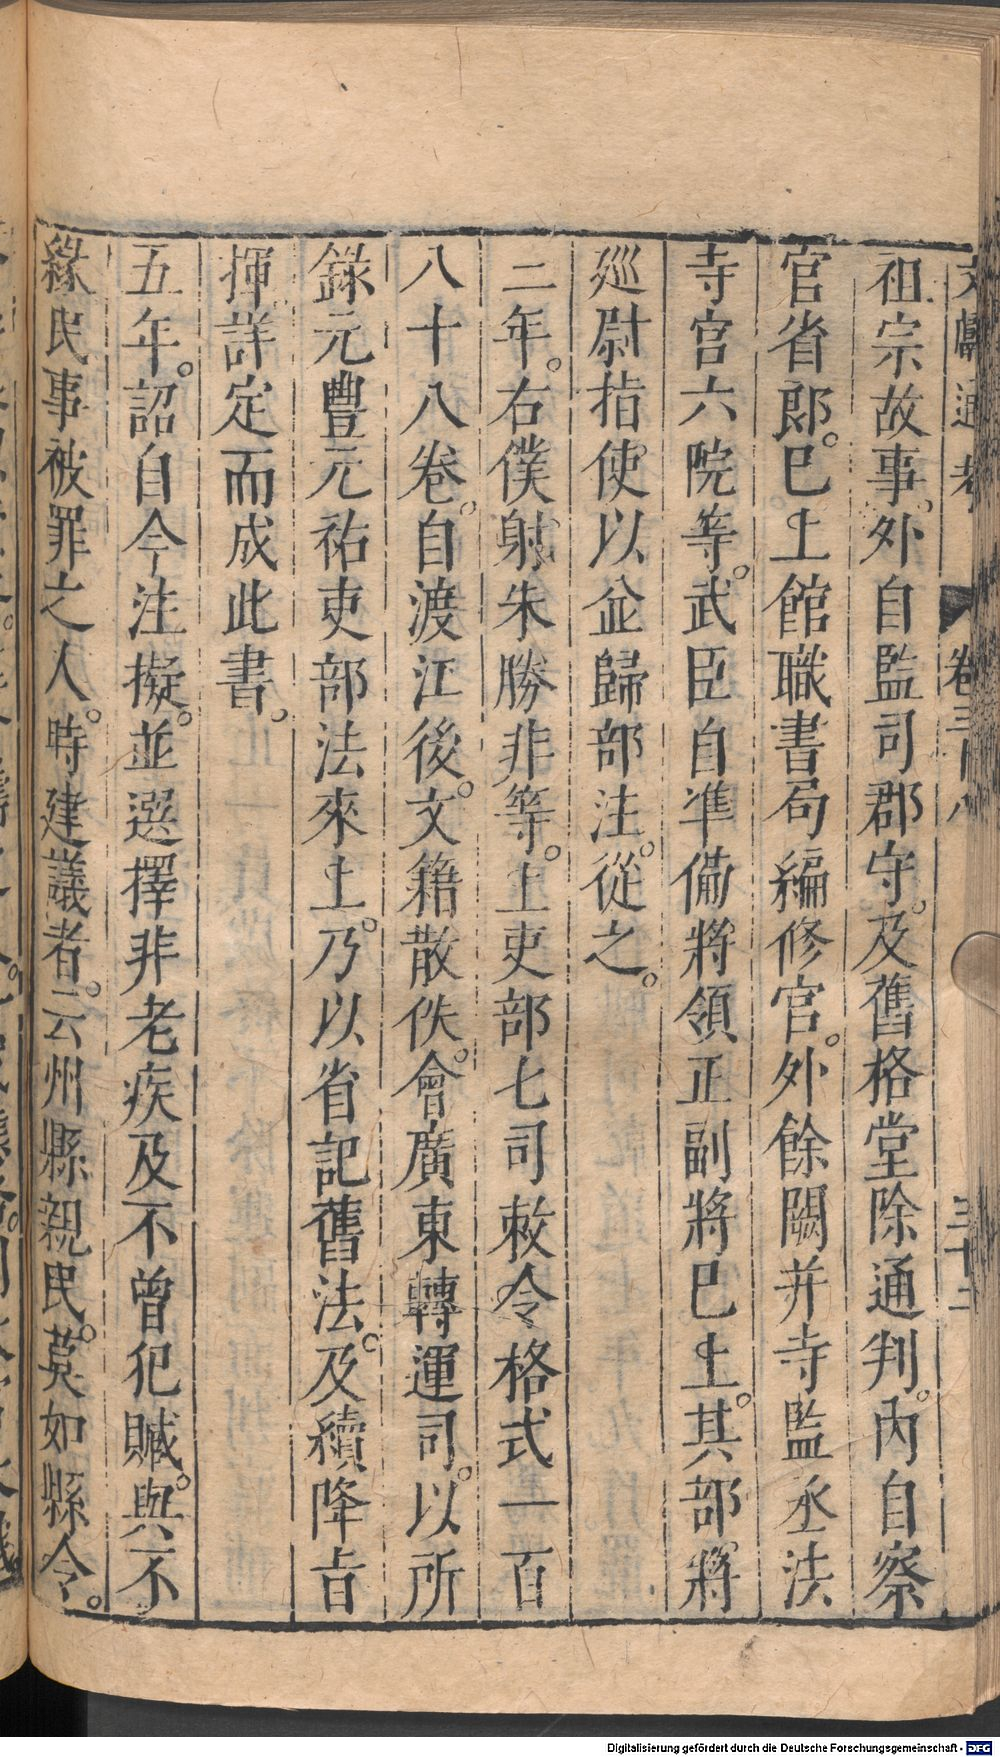 文獻通考 卷三十八 三十三
祖宗故事。外自監司郡守。及舊格堂除通判。內自察
官省郎。已上館職書局編修官。外餘闕并寺監丞法
寺官六院等。武臣自準備將領正副將已上。其部將
廵尉指使以並歸部注。從之。
二年。右僕射朱勝非等。上吏部七司敕令格式一百
八十八卷。自渡江後。文籍散佚。會廣東轉運司。以所
錄元豐元祐吏部法來上。乃以省記舊法。及續降旨
揮詳定而成此書。
五年。詔自今注擬。並選擇非老疾及不曾犯贓。與不
緣民事被罪之人。時建議者。云州縣親民。莫如縣令。
Digitalisierung gefördert durch die Deutsche Forschungsgemeinschaft - DFG